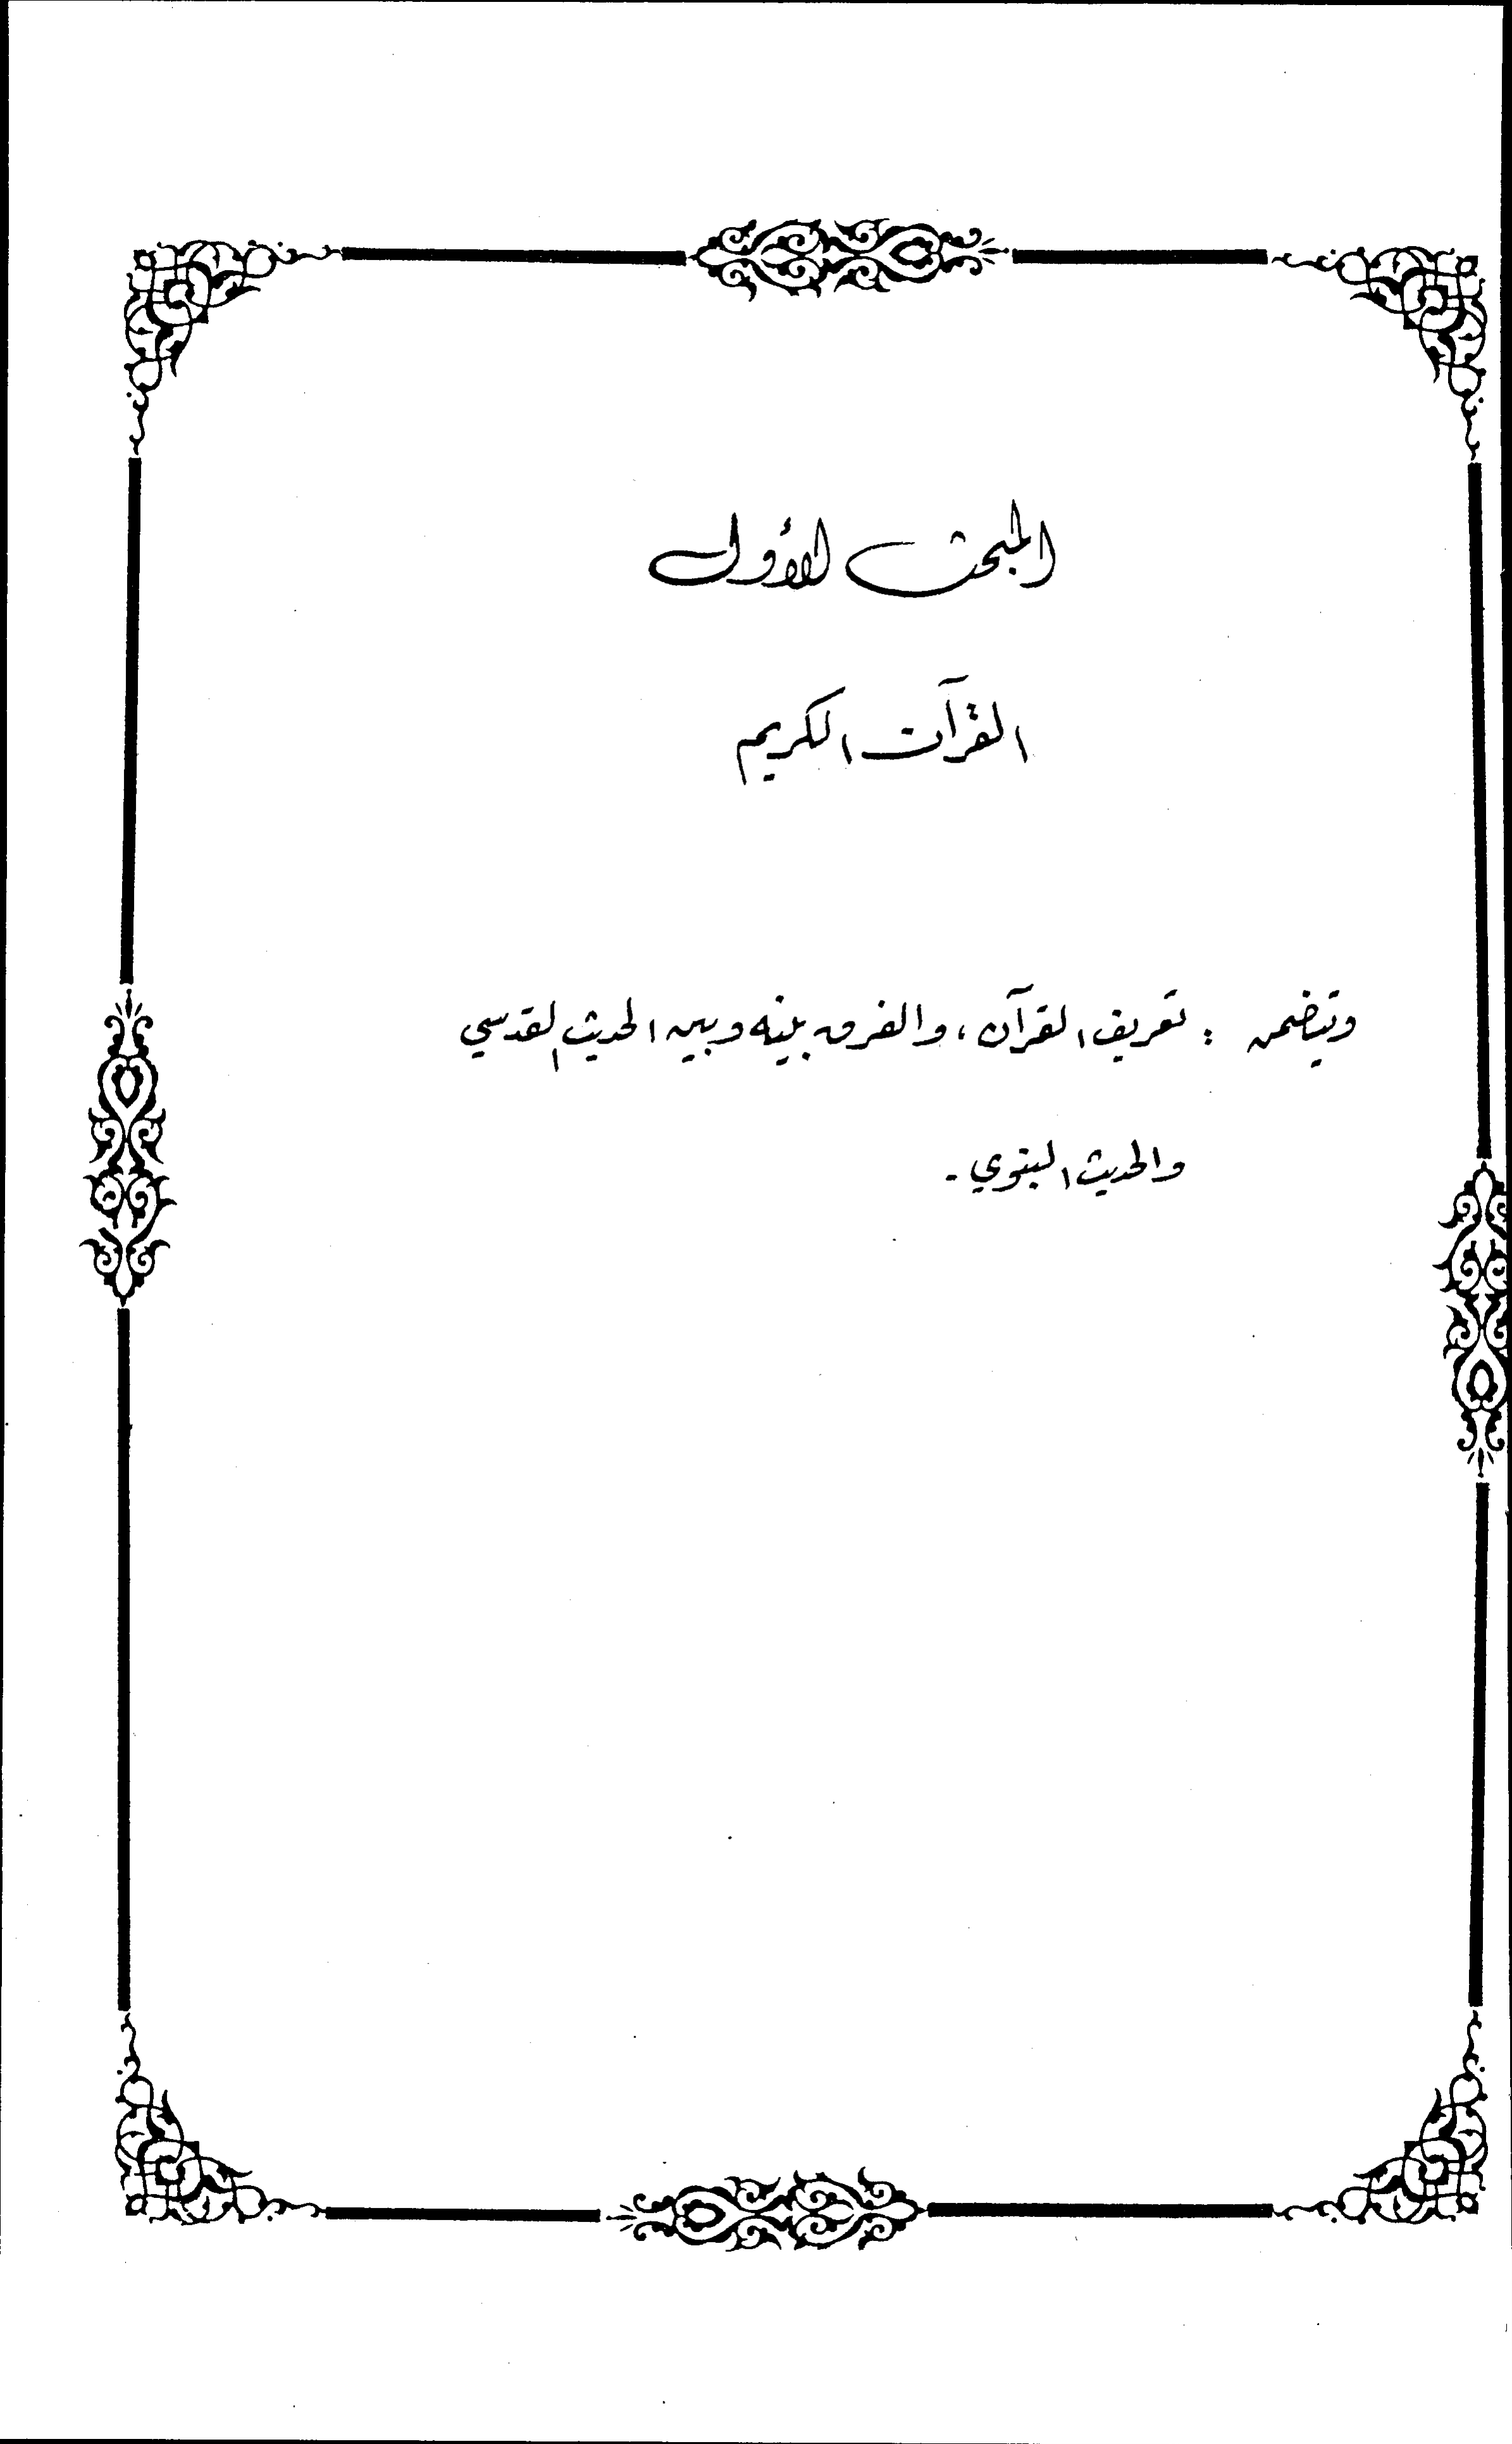 المبحث الأول
القرآن الكريم
ويتضمن : تعريف القرآن ، والفرق بينه وبين الحديث القدسي
والحديث النبوي .